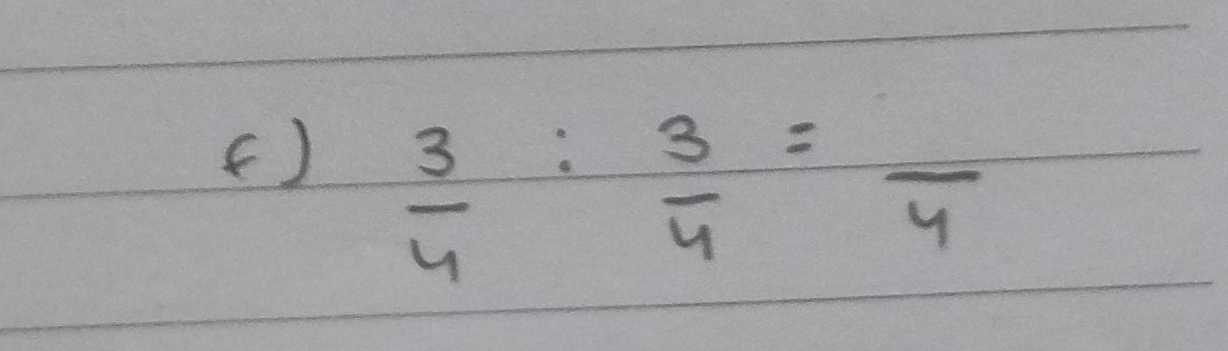 f) 3/4 : 3/4 = /4